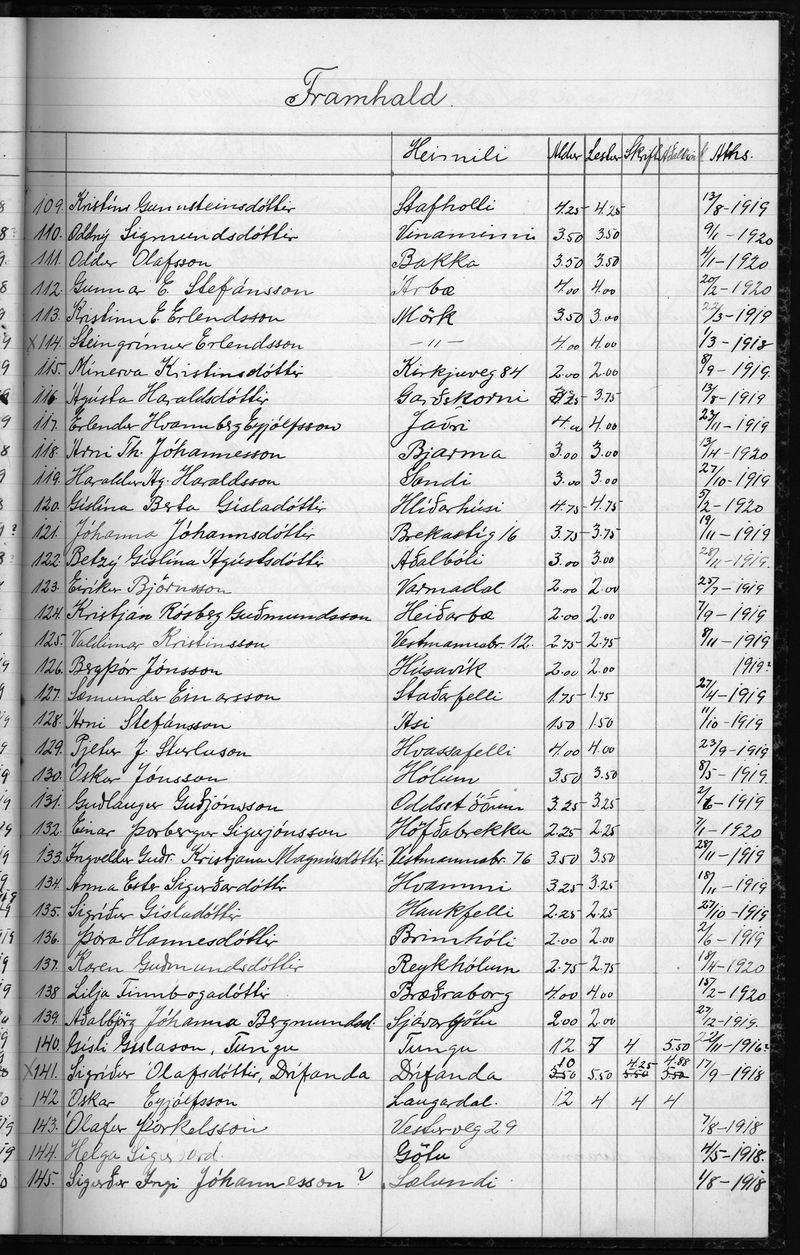 Framhald.
Heimili Aldur Lestur Skrift Aðaleink Aths.
109. Kristíns Gunnsteinsdóttir Stafholti 4.25 4.25 13/8-1919
110. Oddný Sigmundsdóttir Vinaminni 3.50 3.50 9/1-1920
111. Oldur Ólafsson Bakka 3.50 3.50 4/1-1920
112. Gunnar E. Stefánsson Arbæ 4.00 4.00 20/2-1920
113. Kristinn E. Erlendsson Mörk 3.50 3.00 22/3-1919
X114. Steingrímur Erlendsson -"- 4.00 4.00 1/3-1918
115. Minerva Kristinsdóttir Kirkjuveg 84 2.00 2.00 8/9-1919.
116 Ágústa Haraldsdóttir Garðskorni 3.75 13/8-1919
117. Erlendur Hvannberg Eyjólfsson Jaðri 4.00 4.00 23/11-1919
118. Árni Th. Jóhannesson Bjarma 3.00 3.00 13/4-1920
119. Haraldur Ág. Haraldsson Sandi 3.00 3.00 27/10-1919
120. Gíslína Berta Gísladóttir Hlíðarhúsi 4.75 4.75 5/2-1920
121. Jóhanna Jóhannsdóttir Brekastíg 16 3.75 3.75 19/11-1919
122. Betzý Gíslína Ágústsdóttir Aðalbóli 3.00 3.00 28/11-1919.
123. Eiríkur Björnsson Varmadal 2.00 2.00 25/7-1919
124. Kristján Rósberg Guðmundsson Heiðarbæ 2.00 2.00 7/9-1919
125. Valdimar Kristinsson Vestmannabr. 12. 2.75 2.75 9/11-1919
126. Bergþór Jónsson Húsavík 2.00 2.00 1919?
127. Sæmundur Einarsson Staðarfelli 1.75 1.75 27/4-1919
128. Árni Stefánsson Ási 1.50 1.50 11/10-1919
129. Pjetur J. Sturluson Hvassafelli 4.00 4.00 23/9-1919
130. Óskar Jónsson Hólum 3.50 3.50 8/5-1919.
131. Guðlaugur Guðjónsson Oddsstöðum 3.25 3.25 2/6-1919
132. Einar Þorbergur Sigurjónsson Höfðabrekku 2.25 2.25 7/1-1920
133. Ingveldur Guðr. Kristjana Magnúsdóttir Vestmannabr. 76 3.50 3.50 28/11-1919
134. Anna Ester Sigurðardóttir Hvammi 3.25 3.25 18/11-1919
135. Sigríður Gísladóttir Haukfelli 2.25 2.25 27/10-1919
136. Þóra Hannesdóttir Brimhóli 2.00 2.00 2/6-1919
137. Karen Guðmundsdóttir Reykhólum 2.75 2.75 18/4-1920
138 Lilja Finnbogadóttir Bræðraborg 4.00 4.00 15/2-1920
139. Aðalbjörg Jóhanna Bergmundsd. Sjávargötu 2.00 2.00 27/12-1919.
140. Gísli Gíslason, Tungu Tungu 12 7 4 5.50 22/11-1916?
X141. Sigríður Ólafsdóttir, Drífanda Drífanda 10 5.50 5.50 4.25 5.50 4.88 5.50 17/9-1918
142 Óskar Eyjólfsson Laugardal. 12 4 4 4
143. Ólafur Þorkelsson Vesturveg 29 7/8-1918
144. Helga Götu 4/5-1918.
145. Sigurður Ingi Jóhannesson? Sælundi 1/8-1918